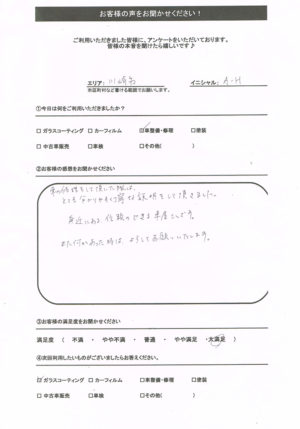 お客様の声をお聞かせください！
ご利用いただきました皆様に、アンケートをいただいております。
皆様の本音を聞けたら嬉しいです♪
エリア： 川崎市 イニシャル： A・H
市区町村など書ける範囲でお願いします。
①今日は何をご利用いただきましたか？
□ ガラスコーティング □ カーフィルム ☑ 車整備・修理 □ 塗装
□ 中古車販売 □ 車検 □ その他（ ）
②お客様の感想をお聞かせください
車の修理をして頂いた際は、
とても分かりやすく丁寧な説明をして頂きました。
身近にある信頼のできる車屋さんです。
また何かあった時は、よろしくお願いいたします。
③お客様の満足度をお聞かせください
満足度 （ 不満 ・ やや不満 ・ 普通 ・ やや満足 ・ 大満足 ）
④次回利用したいものがございましたらお答えください。
☑ ガラスコーティング □ カーフィルム □ 車整備・修理 □ 塗装
□ 中古車販売 □ 車検 □ その他（ ）